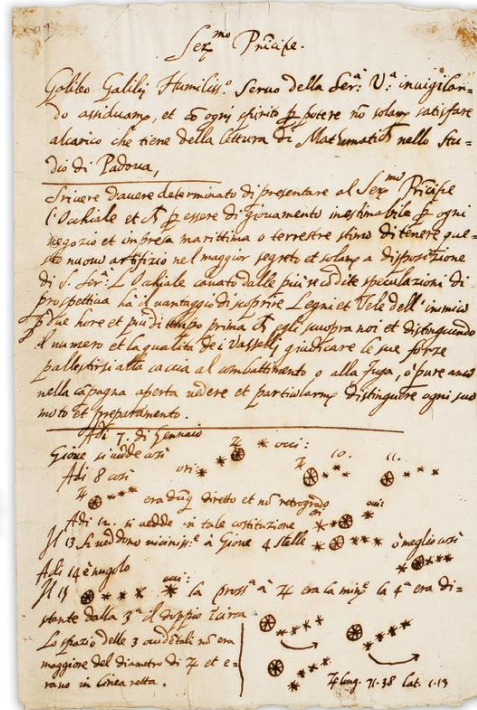 Ser.mo Principe.
Galileo Galilej Humiliss.o Servo della Ser.a V.a invigilan=
do assiduam.e, et cõ ogni spirito ꝑ potere nõ solam.e satisfare
alcarico che tiene della lettura di Mathematich nello Stu=
dio di Padova,
Scrivere d'avere determinato di presentare al Ser.mo Pricipe
l'Ochiale et ꝑ essere di giovamento inestimabile ꝑ ogni
negozio et impresa marittima o terrestre stimo di tenere que=
sto nuovo artifizio nel maggior segreto et solam.e a disposizione
di S. Ser.a L'Ochiale cavato dalle più recõdite speculazioni di
prospettiva há il vantaggio di scoprire Legni et Vele dell'inimico
ꝑ due hore et più di tempo prima egli scuopra noi et distinguendo
il numero et la qualità de i Vasselli giudicare le sue forze
pallestirsi alla caccia al combattimento o alla fuga, ò pure anco
nella cãpagna aperta vedere et particolarm.e distinguere ogni suo
moto et preparamento.
Adi 7. di Gennaio
Giove si vedde cosi ♃ * * occi:
Adi 8 cosi ori * * 10. 11.
♃ era dunq diretto et nõ retrogrado
Adi 12. si vedde in tale costituzione ori occi:
Il 13 si veddono vicinis.e à Giove 4 stelle ò meglio cosi
Adi 14 è nugolo
Il 15 occi: la pross.a à ♃ era la min.e la 4.a era di=
stante dalla 3.a il doppio circa
Lo spazio delle 3 occidetali nõ era
maggiore del diametro di ♃ et e=
rano in linea retta.
♃ long. 71·38 lat. 1·13